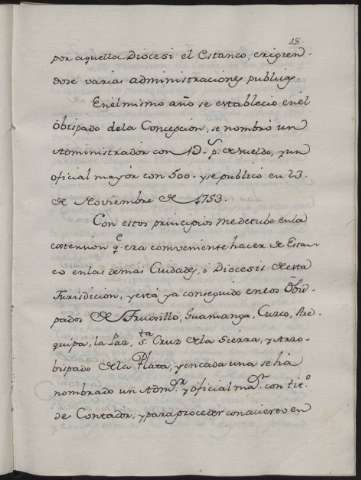 18
por aquella Diocesi el Estanco, erigien-
dose varias administraciones publicas
En el mismo año se establecio en el
Obispado de la Concepcion, se nombró un
Administrador con p.s de sueldo, y un
oficial mayor con 500. y se publicó en 23
de Noviembre de 1753.
Con estos principios me detube en la
extension q.e era combeniente hacer de Estan-
co en las demas Ciudades, o Diocesis de esta
Jurisdiccion, y está ya conseguido en los Obis-
pados de Truxillo, Guamanga, Cuzco, Are-
quipa, la Paz, S.ta Cruz de la Sierra, y Arzo-
bispado de la Plata, y en cada una se há
nombrado un Adm.or y oficial ma.or con tit.o
de Contador, y para proceder con acierto en